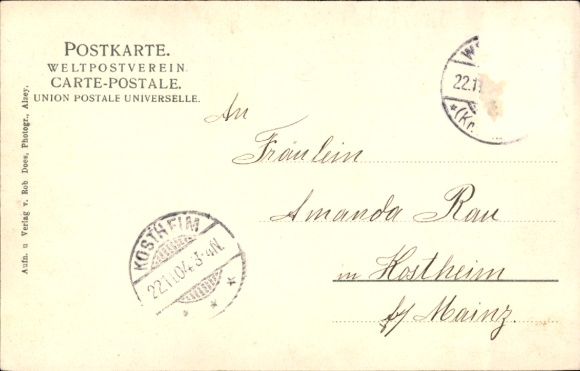 POSTKARTE.
WELTPOSTVEREIN.
CARTE-POSTALE.
UNION POSTALE UNIVERSELLE.
An
Fräulein
Amanda Rau
in Kostheim
b/ Mainz.
KOSTHEIM
22.11.04. 3-4N.
22.11
(Kr.
Aufn. u Verlag v. Rob Does, Photogr., Alzey.